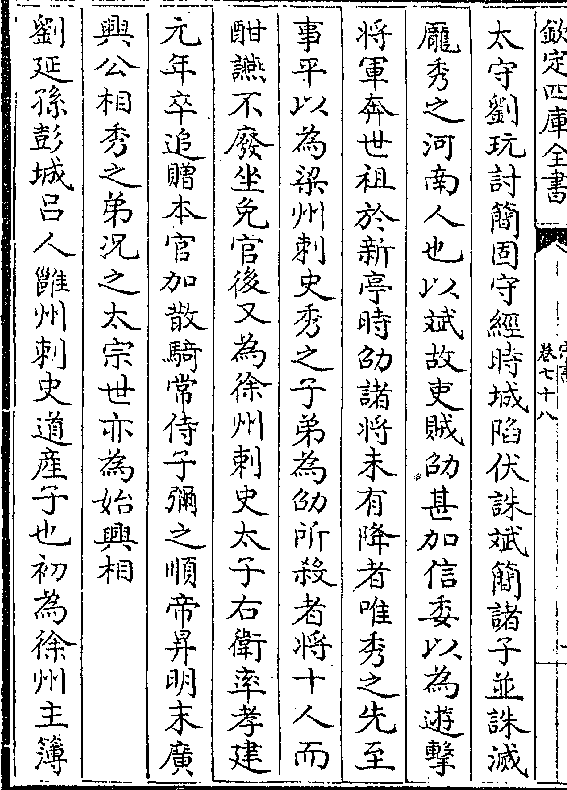 欽定四庫全書
卷七十八
太守劉玩討簡固守經時城陷伏誅斌簡諸子並誅滅
龐秀之河南人也以斌故吏賊劭甚加信委以為遊擊
將軍奔世祖於新亭時劭諸將未有降者唯秀之先至
事平以為梁州刺史秀之子弟為劭所殺者將十人而
酣讌不廢坐免官後又為徐州刺史太子右衛率孝建
元年卒追贈本官加散騎常侍子彌之順帝昇明末廣
興公相秀之弟况之太宗世亦為始興相
劉延孫彭城吕人雝州刺史道産子也初為徐州主簿